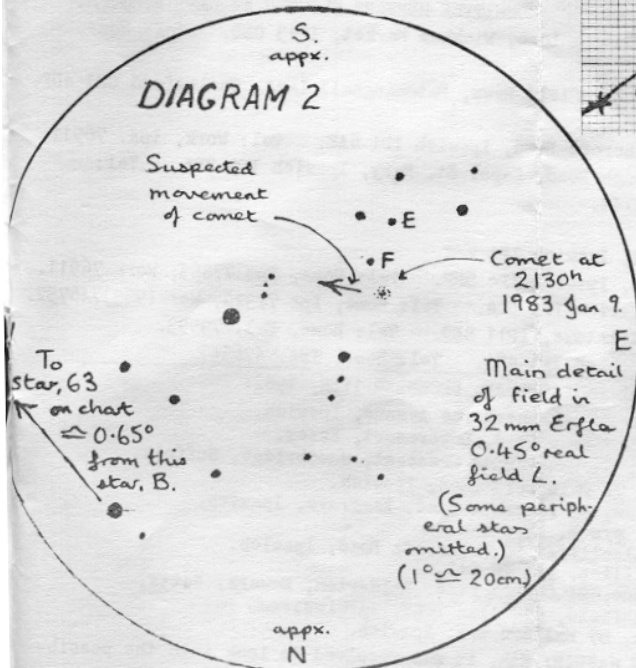 S.
appx.
DIAGRAM 2
Suspected
movement
of comet
E
F
Comet at
2130h
1983 Jan 9.
E
To
star, 63
on chart
≏ 0.65°
from this
star, B.
Main detail
of field in
32mm Erfle
0.45° real
field L.
(Some periph-
eral stars
omitted.)
(1° ≏ 20cm)
appx.
N